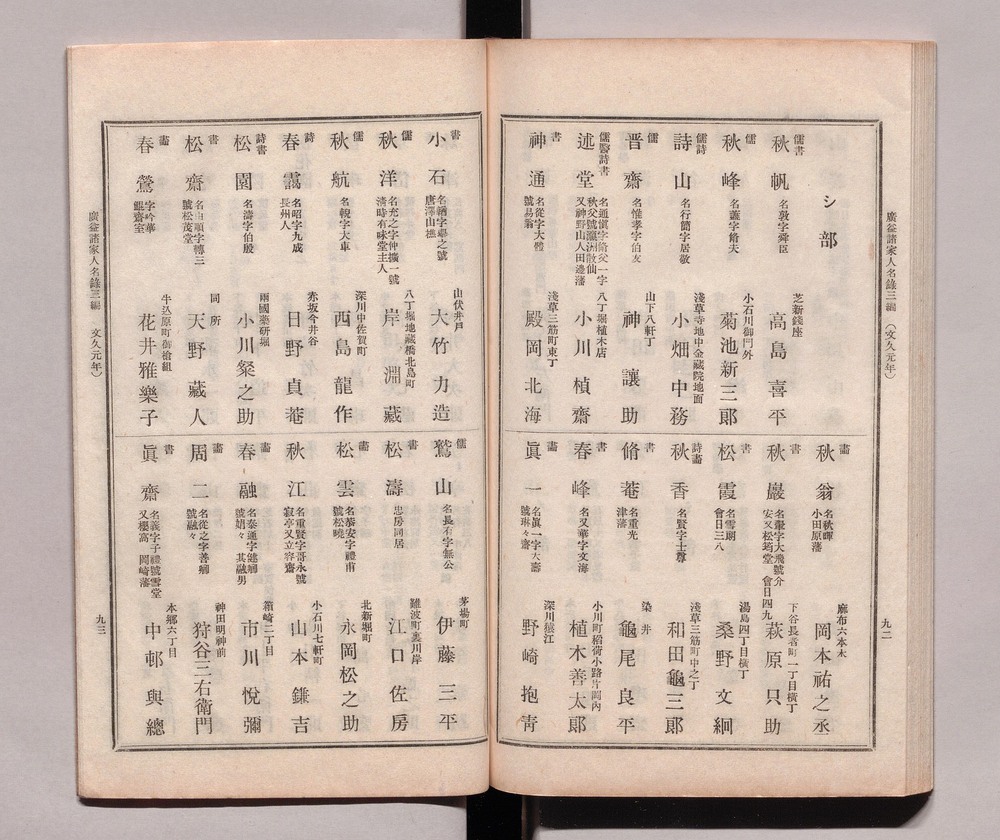 廣益諸家人名錄三編 （文久元年）
九二
シ部
儒書 秋帆 名敦字舜臣 芝新錢座 高島喜平
儒 秋峰 名蘐字脩夫 小石川御門外 菊池新三郎
儒詩 詩山 名行簡字居敬 淺草寺地中金藏院地面 小畑中務
儒 晋齋 名惟孝字伯友 山下八軒丁 神讓助
儒醫詩書 述堂 八丁堀植木店 小川楨齋
書 神通 名從字大體 號易翁 淺草三筋町東丁 殿岡北海
畵 秋翁 名秋暉 小田原藩 麻布六本木 岡本祐之丞
書 秋巖 名鞏字大飛號介安又松筠堂 會日四九 下谷長者町一丁目橫丁 萩原只助
書 松霞 名雪朗 會日三八 湯島四丁目橫丁 桑野文絅
詩畵 秋香 名賢字士尊 淺草三筋町中之丁 和田龜三郎
書 脩菴 名重光 津藩 染井 龜尾良平
書 春峰 名又華字文海 小川町稻荷小路片岡内 植木善太郎
畵 眞一 名眞一字大壽 號琳々齋 深川猿江 野崎抱靑
書 小石 山伏井戸 大竹力造
儒 秋洋 名充之字仲擴一號淸時有味堂主人 八丁堀地藏橋北島町 岸淵藏
儒 秋航 名輗字大車 深川中佐賀町 西島龍作
詩 春靄 名昭字九成 長州人 赤坂今井谷 日野貞菴
詩書 松園 名濤字伯殷 兩國藥研堀 小川粲之助
書 松齋 名由順字轉三 號松茂堂 同所 天野藏人
畵 春鶯 字吟華 鯤齋室 牛込原町御槍組 花井雅樂子
儒 鷲山 名長有字無公 茅場町 伊藤三平
書 松濤 忠房同居 難波町裏川岸 江口佐房
畵 松雲 名恭安字禮甫 號松曉 北新堀町 永岡松之助
畵 秋江 名重賢字哥永號寂亭又立容齋 小石川七軒町 山本鎌吉
畵 春融 名泰通字健卿 號娟々 其融男 箱崎二丁目 市川悅彌
畵 周二 名從之字善卿 號融々 神田明神前 狩谷三右衛門
書 眞齋 名義字子禮號雪堂又櫻高 岡崎藩 本鄉六丁目 中邨與總
廣益諸家人名錄三編 （文久元年）
九三